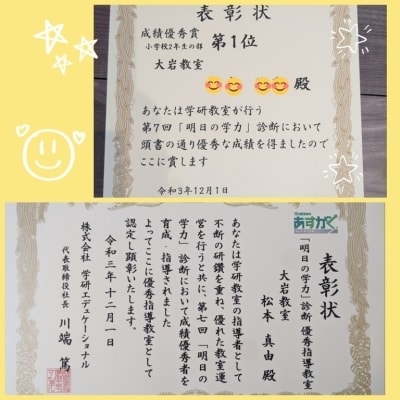 表彰状
成績優秀賞
小学校2年生の部
第1位
大岩教室
殿
あなたは学研教室が行う
第7回「明日の学力」診断において
頭書の通り優秀な成績を得ましたので
ここに賞します
令和3年12月1日
あすがく
表彰状
「明日の学力」診断 優秀指導教室
大岩教室
松本 真由 殿
あなたは学研教室の指導者として
不断の研鑽を重ね、優れた教室運
営を行うと共に、第七回「明日の
学力」診断において成績優秀者を
育成・指導されました
よってここに優秀指導教室として
認定し顕彰いたします。
令和三年十二月一日
株式会社 学研エデュケーショナル
代表取締役社長 川端 篤